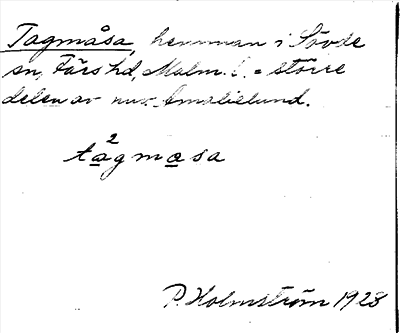 Tagmåsa, hemman i Sövde
sn, Färs hd, Malm. l. = större
delen av nuv. Amalielund.
2
tagmasa
P. Holmström 1928